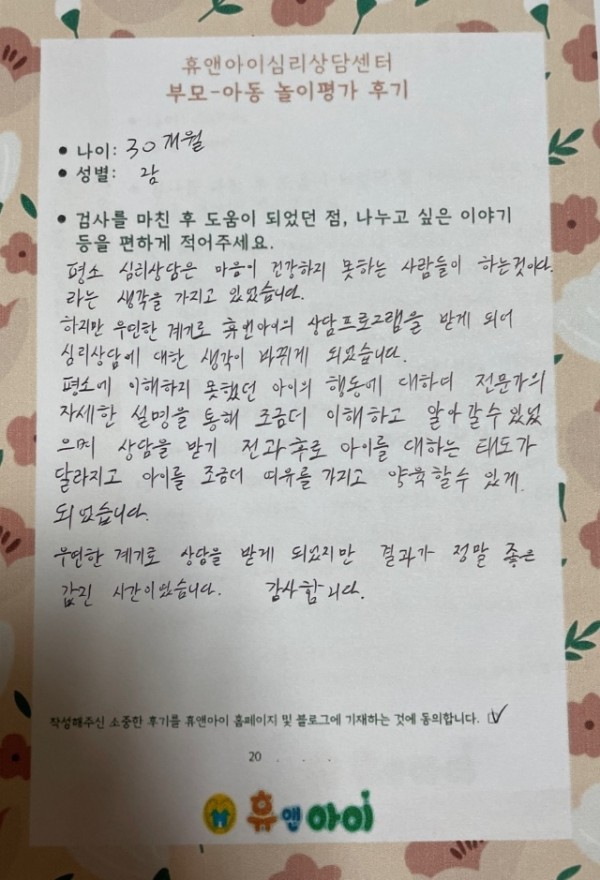 휴앤아이심리상담센터
부모-아동 놀이평가 후기
• 나이: 30개월
• 성별: 남
• 검사를 마친 후 도움이 되었던 점, 나누고 싶은 이야기
등을 편하게 적어주세요.
평소 심리상담은 마음이 건강하지 못하는 사람들이 하는것이다.
라는 생각을 가지고 있었습니다.
하지만 우연한 계기로 휴앤아이의 상담프로그램을 받게 되어
심리상담에 대한 생각이 바뀌게 되었습니다.
평소에 이해하지 못했던 아이의 행동에 대하여 전문가의
자세한 설명을 통해 조금더 이해하고 알아갈수 있었
으며 상담을 받기 전과 후로 아이를 대하는 태도가
달라지고 아이를 조금더 여유를 가지고 양육할수 있게
되었습니다.
우연한 계기로 상담을 받게 되었지만 결과가 정말 좋은
값진 시간이었습니다. 감사합니다.
작성해주신 소중한 후기를 휴앤아이 홈페이지 및 블로그에 기재하는 것에 동의합니다. ☑
20 . . .
휴앤아이